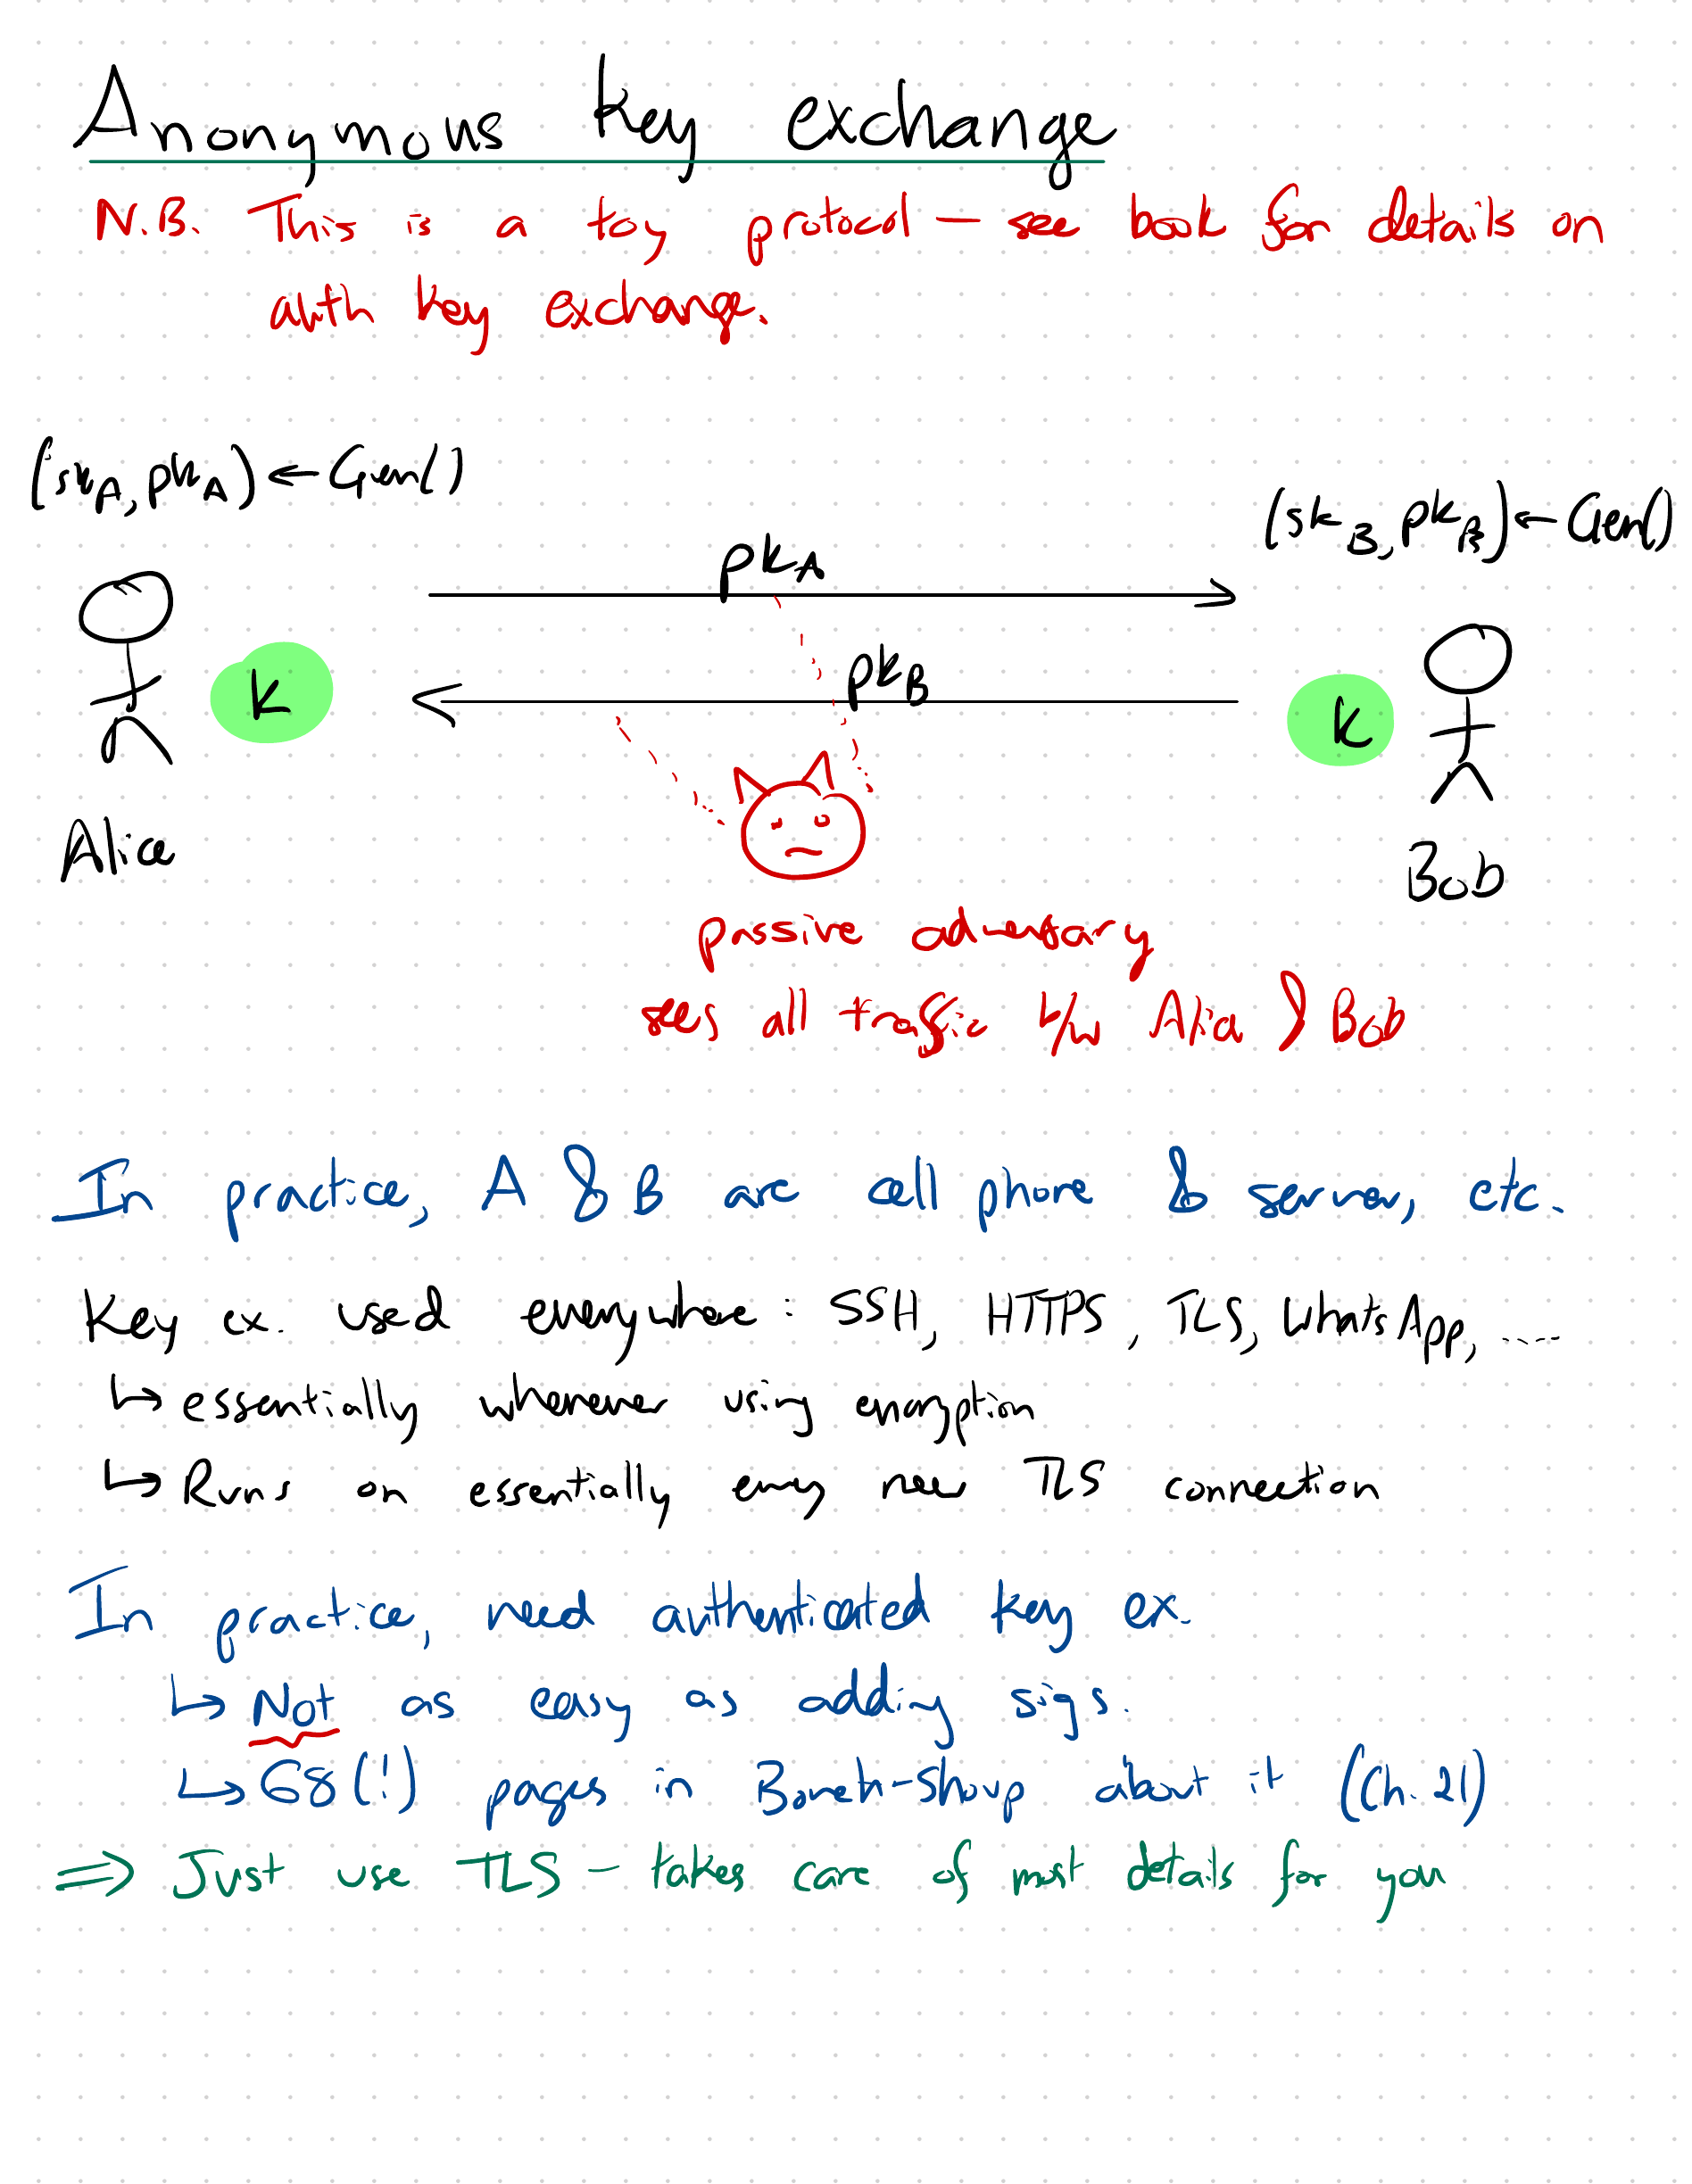 Anonymous key exchange
N.B. This is a toy protocol — see book for details on
auth key exchange.
(sk_A, pk_A) ← Gen()
(sk_B, pk_B) ← Gen()
pk_A
pk_B
k
k
Alice
Bob
passive adversary
sees all traffic b/w Alice & Bob
In practice, A & B are cell phone & server, etc.
Key ex. used everywhere: SSH, HTTPS, TLS, WhatsApp, .....
↳ essentially whenever using encryption
↳ Runs on essentially every new TLS connection
In practice, need authenticated key ex.
↳ Not as easy as adding sigs.
↳ 68(!) pages in Boneh-Shoup about it (Ch. 21)
⇒ Just use TLS – takes care of most details for you